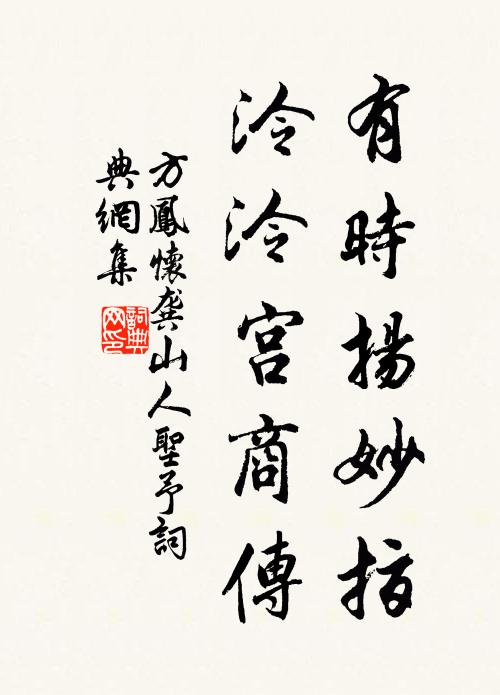 有時揚妙指
泠泠宮商傳
方鳳懷龔山人聖予詞
典網集
詞典
网印